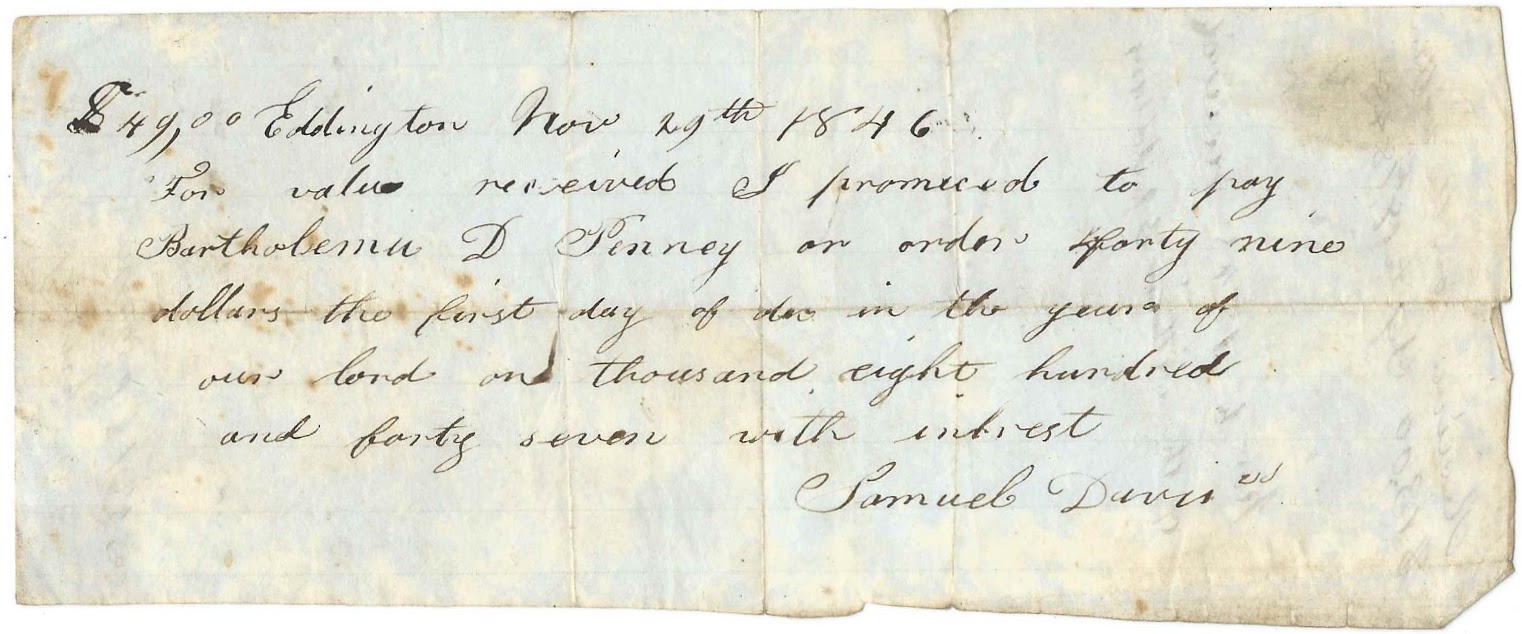 $49,00 Eddington Nov 29th 1846
For value received I promiced to pay
Bartholemu D Penney or order forty nine
dollars the first day of dec in the year of
our lord one thousand eight hundred
and forty seven with intrest
Samuel Davis 2d